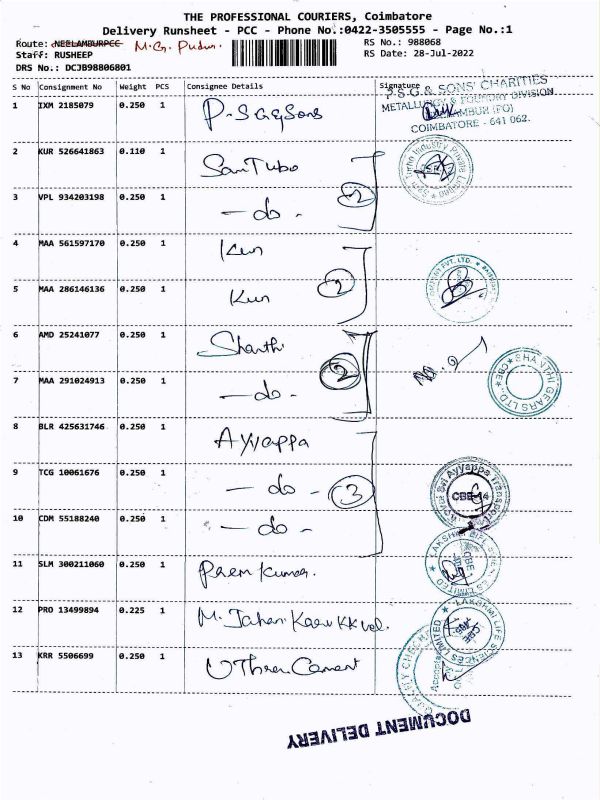 THE PROFESSIONAL COURIERS, Coimbatore
Delivery Runsheet - PCC - Phone No.:0422-3505555 - Page No.:1
Route: NEELAMBURPCC M.G. Pudur
RS No.: 988068
Staff: RUSHEEP
RS Date: 28-Jul-2022
DRS No.: DCJB98806801
S No Consignment No Weight PCS Consignee Details Signature
1 IXM 2185079 0.250 1 P.S G & Sons
P.S.G.& SONS' CHARITIES
METALLURGY & FOUNDRY DIVISION
NEELAMBUR (PO)
COIMBATORE - 641 062.
2 KUR 526641863 0.110 1 Sam Turbo
Sam Turbo Industry Private Limited
3 VPL 934203198 0.250 1 - do - 2
4 MAA 561597170 0.250 1
5 MAA 286146136 0.250 1 2
PVT. LTD.
6 AMD 25241077 0.250 1 Shanthi
SHANTHI GEARS LTD., CBE
7 MAA 291024913 0.250 1 - do - 2
8 BLR 425631746 0.250 1 Ayyappa
9 TCG 10061676 0.250 1 - do - 3
Kovai Sri Ayyappa Transport
CBE-14
10 CDM 55188240 0.250 1 - do -
11 SLM 300211060 0.250 1 Prem Kumar.
LAKSHMI LIFE SCIENCES LIMITED
CBE
12 PRO 13499894 0.225 1 M.
LAKSHMI LIFE SCIENCES LIMITED
CBE
13 KRR 5506699 0.250 1 Cement
DOCUMENT DELIVERY